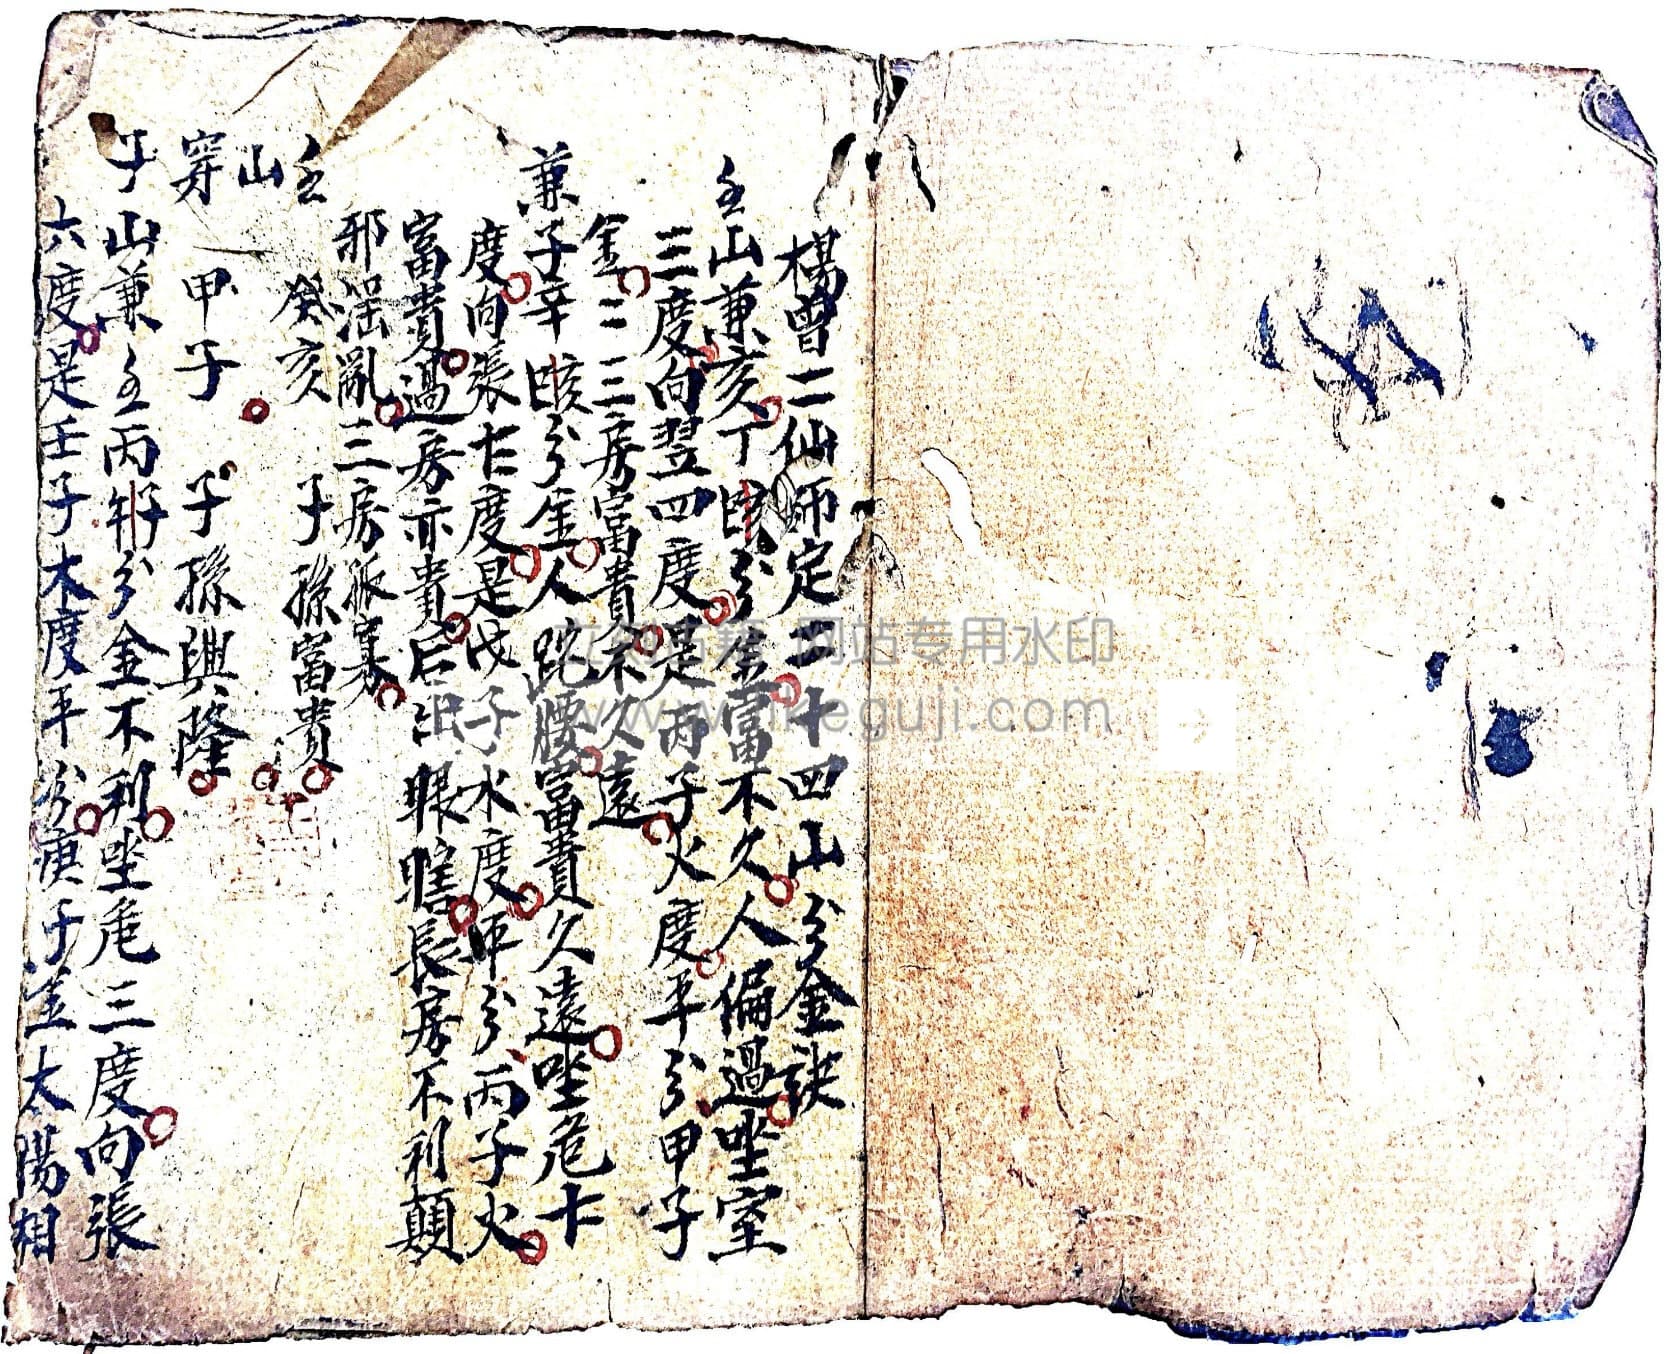 楊曾二仙師定二十四山分金訣
壬山兼亥丁 分金富不久人偏過坐室
三度向翌四度是丙子火度平分甲子
金二三房富貴不久遠
兼子辛 分金人跎腰富貴久遠坐危七
度向張七度是戊子水度平分丙子火
富貴過房亦貴后出眼瞎長房不利顛
邪滛亂三房孤寡
壬山
癸亥 子孫富貴
穿 甲子 子孫興隆
子山兼壬丙 分金不利坐危三度向張
六度是壬子木度平分庚子金太陽相
立刻古籍 网站专用水印
www.likeguji.com